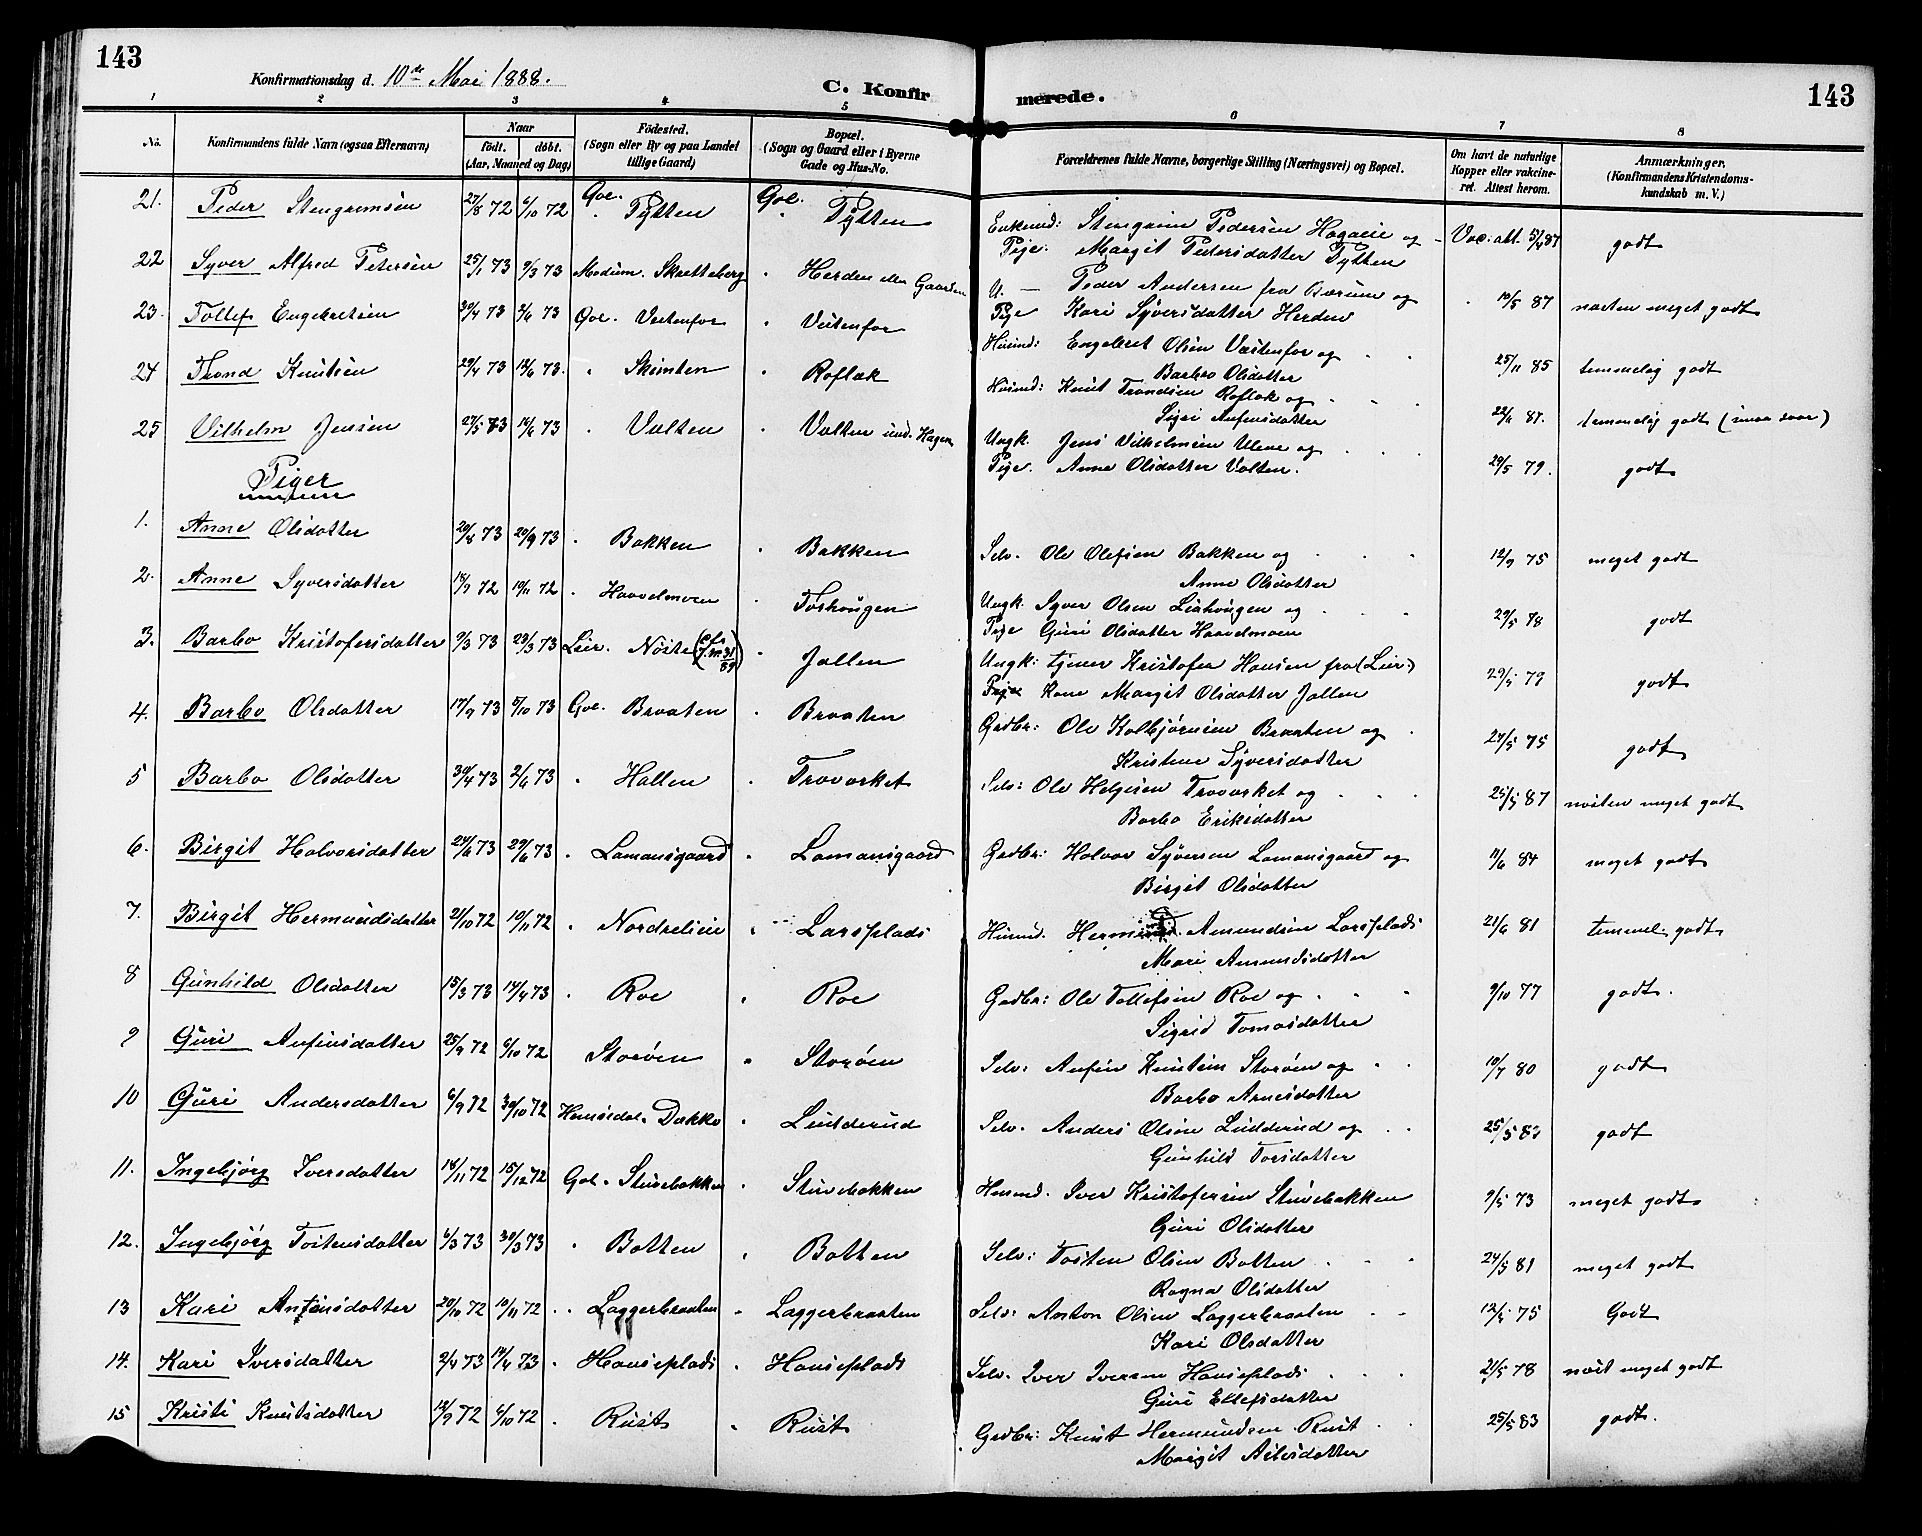 143
Konfirmationsdag d. 10de Mai 1888.
C. Konfirmerede.
143
1 2 3 4 5 6 7 8
No.
Konfirmandens fulde Navn (ogsaa Efternavn)
Naar
födt. döbt.
(Aar, Maaned og Dag)
Födested.
(Sogn eller By og paa Landet
tillige Gaard)
Bopæl.
(Sogn og Gaard eller i Byerne
Gade og Hus-No.
Forældrenes fulde Navne, borgerlige Stilling (Næringsvei) og Bopæl.
Om havt de naturlige
Kopper eller vakcine-
ret. Attest herom.
Anmærkninger.
(Konfirmandens Kristendoms-
kundskab m. V.)
21. Peder Stengrimsen 27/8 72 6/10 72 Gol. Tytten Gol. Tytten Enkemd: Stengrim Pedersen Hagaeie og Vac: att. 5/4 87 godt
Pige: Margit Pedersdatter Tytten
22 Syver Alfred Petersen 25/1 73 9/3 73 Modum. Skretteberg " Herden eller Gaarden U. — Peder Andersen fra Bærum og " 10/5 87 næsten meget godt
Pige Kari Syversdatter Herden
23. Tollef Engebretsen 30/4 73 2/6 73 Gol. Vestenfor " Vestenfor Husmd: Engebret Olsen Vestenfor og 25/11 85 temmelig godt
Barbro Olsdatter
24 Trond Knutsen 29/4 73 14/6 73. " Skimten " Roflak Husmd: Knut Trondsen Roflak og 22/6 87. temmelig godt (imaa svar)
Sigri Anfinsdatter
25 Vilhelm Jensen 27/5 73 14/6 73 " Valten " Valten und. Hagen Ungk. Jens Vilhelmsen Ulene og 29/5 79. godt
Pige. Anne Olsdatter Valten.
Piger
1. Anne Olsdatter 20/8 73 20/9 73 " Bakken " Bakken Selv. Ole Olefsen Bakken og 12/9 75 meget godt
Anne Olsdatter
2. Anne Syversdatter 18/9 72 10/11 72 " Haavelmoen " Torhougen Ungk. Syver Olsen Liahougen og 29/5 78 godt
Pige Guri Olsdatter Haavelmoen
3. Barbo Kristofersdatter 9/3 73 23/3 73 Lier. Nöste (cfr. J.m 31/89) " Jallen Ungk: tjener Kristofer Hansen fra (Lier) 29/5 79 godt
Pige Kone Margit Olsdatter Jallen
4. Barbo Olsdatter 17/9 73 5/10 73 Gol. Braaten " Braaten Grdbr: Ole Kolbjørnsen Braaten og 27/5 75 godt
Kristine Syversdatter
5 Barbo Olsdatter 30/4 73 2/6 73 " Hallen " Travarket Selv: Ole Helgesen Travarket og 25/5 87 næsten meget godt
Barbo Eriksdatter
6. Birgit Halvorsdatter 24/6 73 29/6 73 " Lamansgaard " Lamansgaard Grdbr: Halvor Syversen Lamansgaard og 11/6 84 meget godt
Birgit Olsdatter
7. Birgit Hermundsdatter 21/10 72 10/11 72 " Nordrelieie " Larsplads Husmd. Hermund Amundsen Larsplads 21/6 81 temmel. godt
Mari Amundsdatter
8 Gunhild Olsdatter 15/3 73 14/4 73 " Roe " Roe Grdbr: Ole Tollefsen Roe og 9/10 77 godt.
Sigrid Tomasdatter
9 Guri Anfinsdatter 25/9 72 6/10 72 Storöen " Storöen Selv: Anfin Knutsen Storöen og 10/7 80 godt
Barbo Arnesdatter
10 Guri Andersdatter 6/9 72 30/10 72 Hemsedal. Dokko " Ludderud Selv. Anders Olsen Ludderud og 25/5 83 godt
Gunhild Torsdatter
11. Ingebjörg Iversdatter 18/11 72 15/12 72 Gol. Stuvebakken " Stuvebakken Husmd. Iver Kristofersen Stuvebakken 9/5 73 meget godt
Guri Olsdatter
12. Ingebjörg Tostensdatter 6/3 73 30/3 73 " Botten " Botten Selv: Tosten Olsen Botten 24/5 81 meget godt
Ragna Olsdatter
13 Kari Antonsdatter 20/10 72 10/11 72 " Laggerbraaten " Laggerbraaten Selv: Anton Olsen Laggerbraaten 12/5 75 Godt
Kari Olsdatter
14. Kari Iversdatter 2/4 73 14/4 73 " Hauseplads " Hauseplads Selv. Iver Iversen Hauseplads 21/5 78 næst meget godt
Guri Ellefsdatter
15 Kristi Knutsdatter 12/9 72 6/10 72 " Rust " Rust Grdbr: Knut Hermundsen Rust 25/5 83 godt.
Margit Asledatter